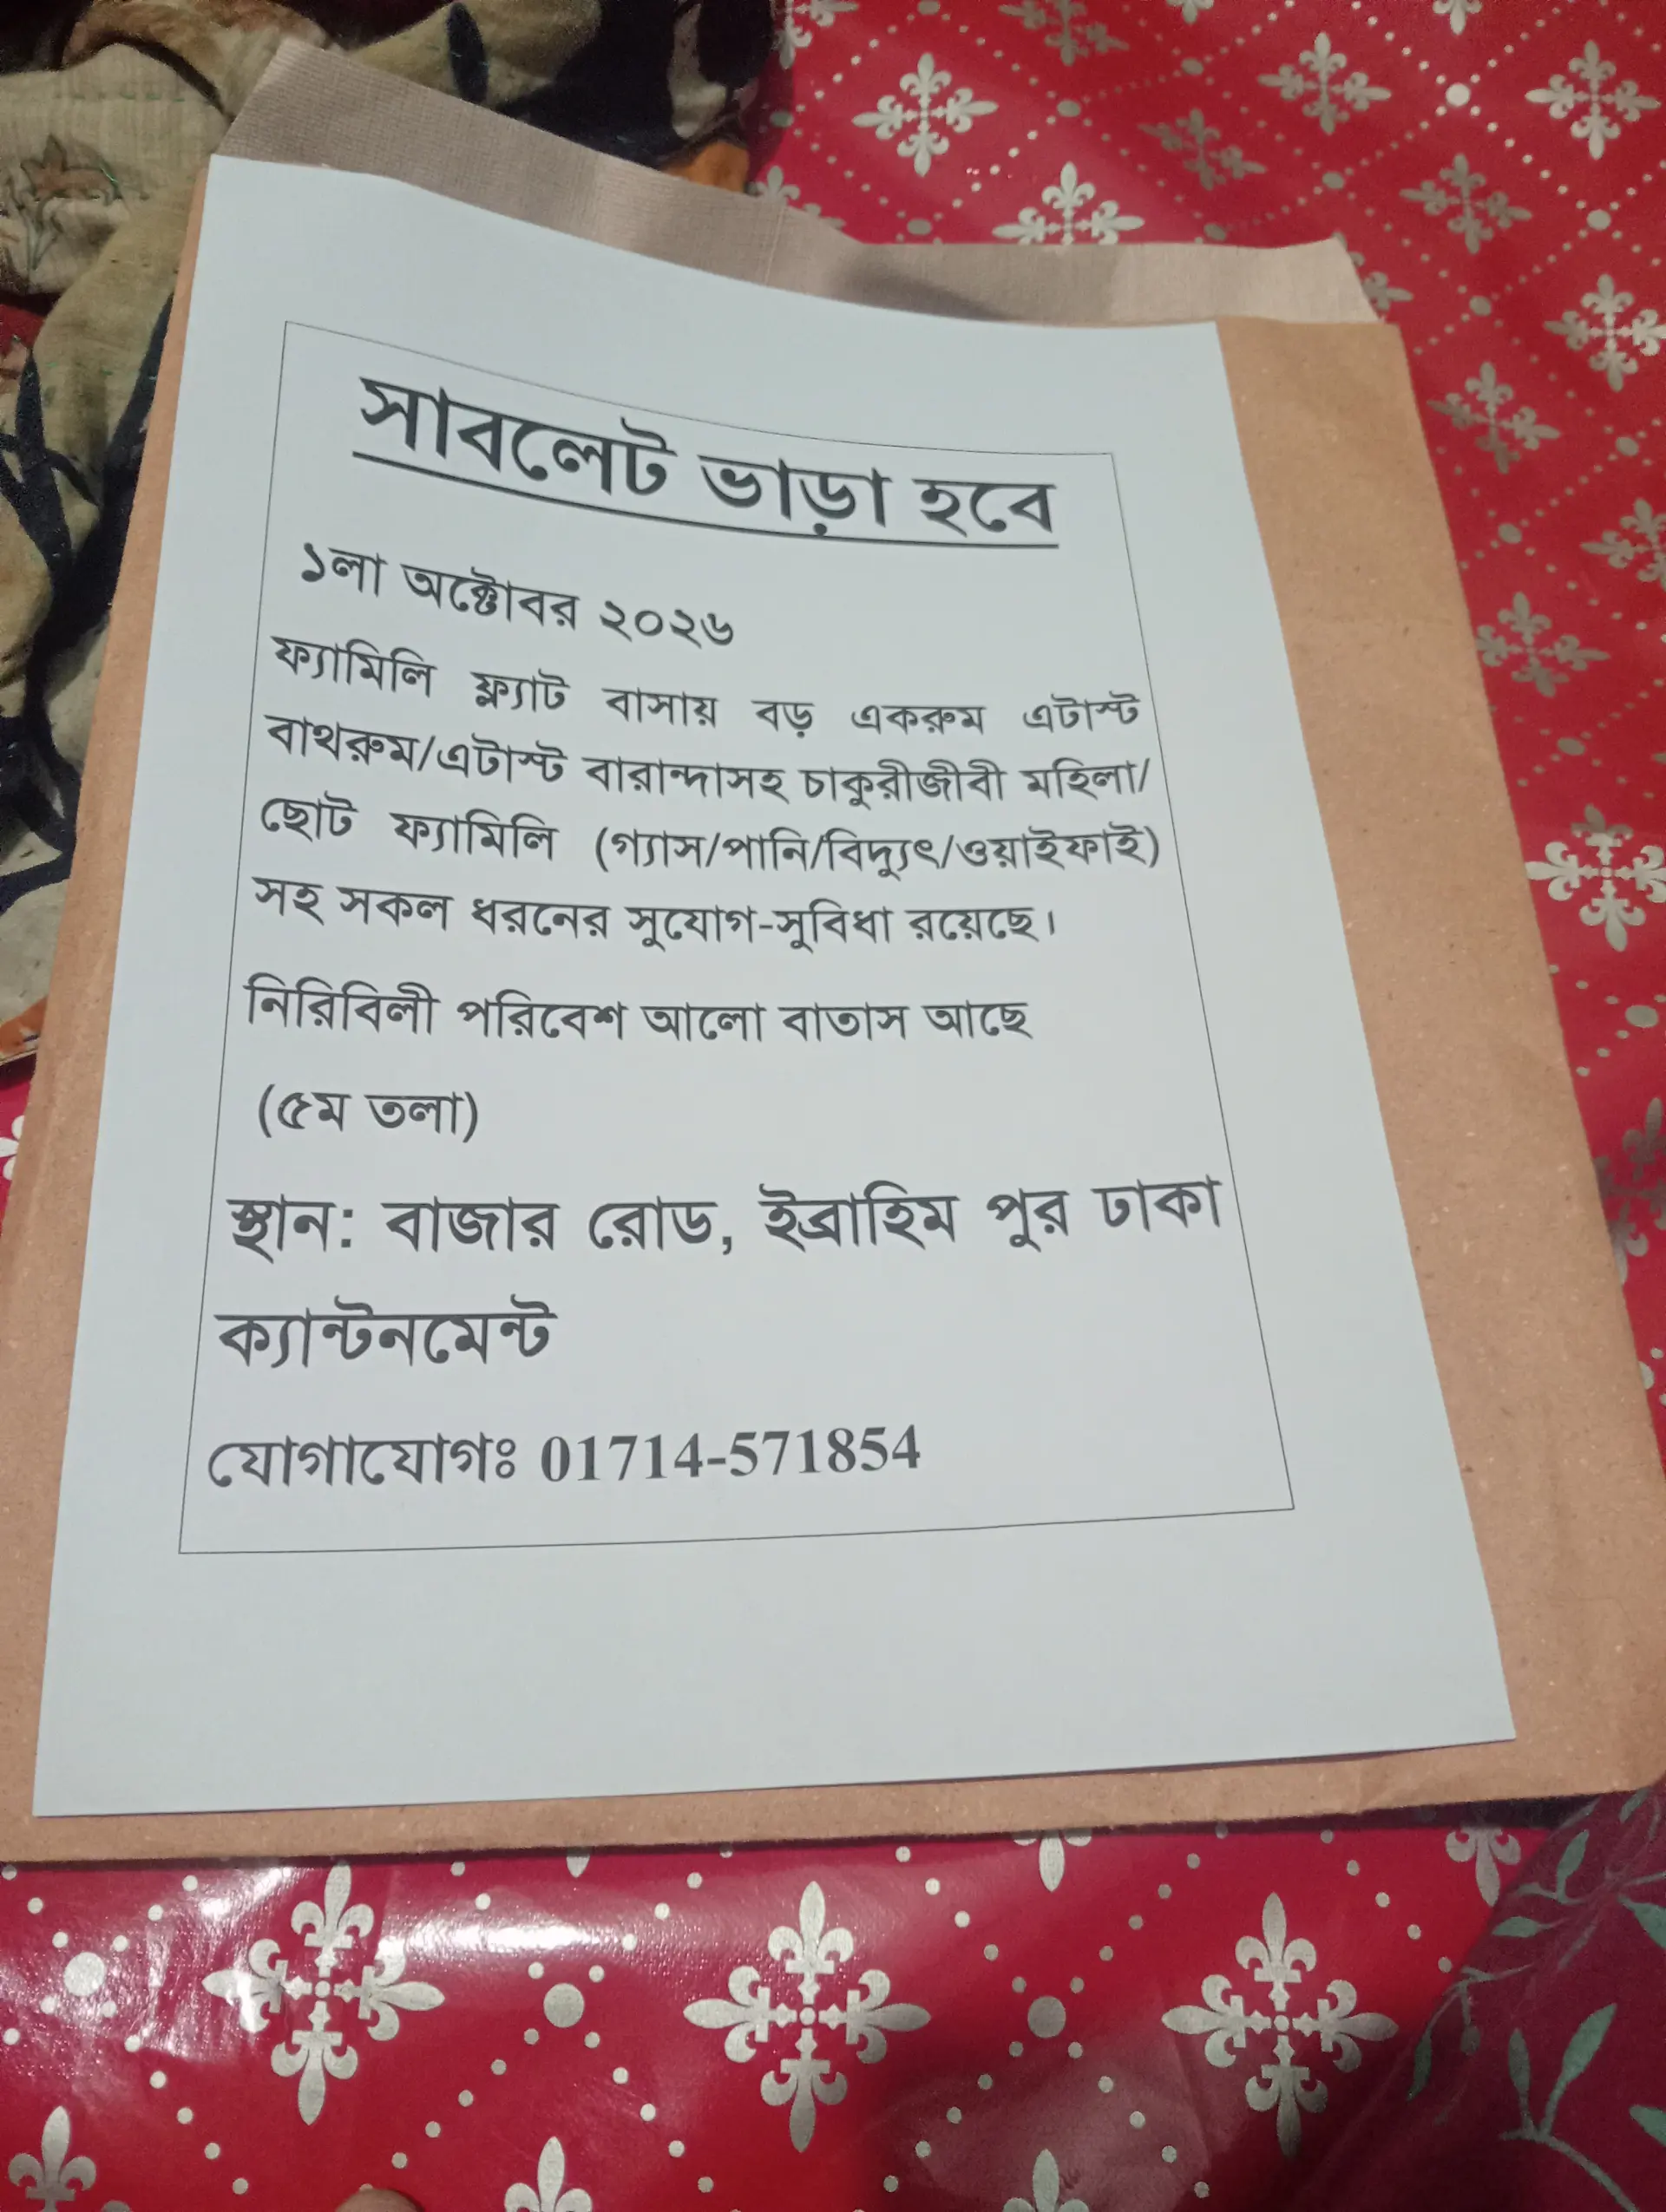 সাবলেট ভাড়া হবে
১লা অক্টোবর ২০২৬
ফ্যামিলি ফ্ল্যাট বাসায় বড় একরুম এটাস্ট
বাথরুম/এটাস্ট বারান্দাসহ চাকুরীজীবী মহিলা/
ছোট ফ্যামিলি (গ্যাস/পানি/বিদ্যুৎ/ওয়াইফাই)
সহ সকল ধরনের সুযোগ-সুবিধা রয়েছে।
নিরিবিলী পরিবেশ আলো বাতাস আছে
(৫ম তলা)
স্থান: বাজার রোড, ইব্রাহিম পুর ঢাকা
ক্যান্টনমেন্ট
যোগাযোগঃ 01714-571854